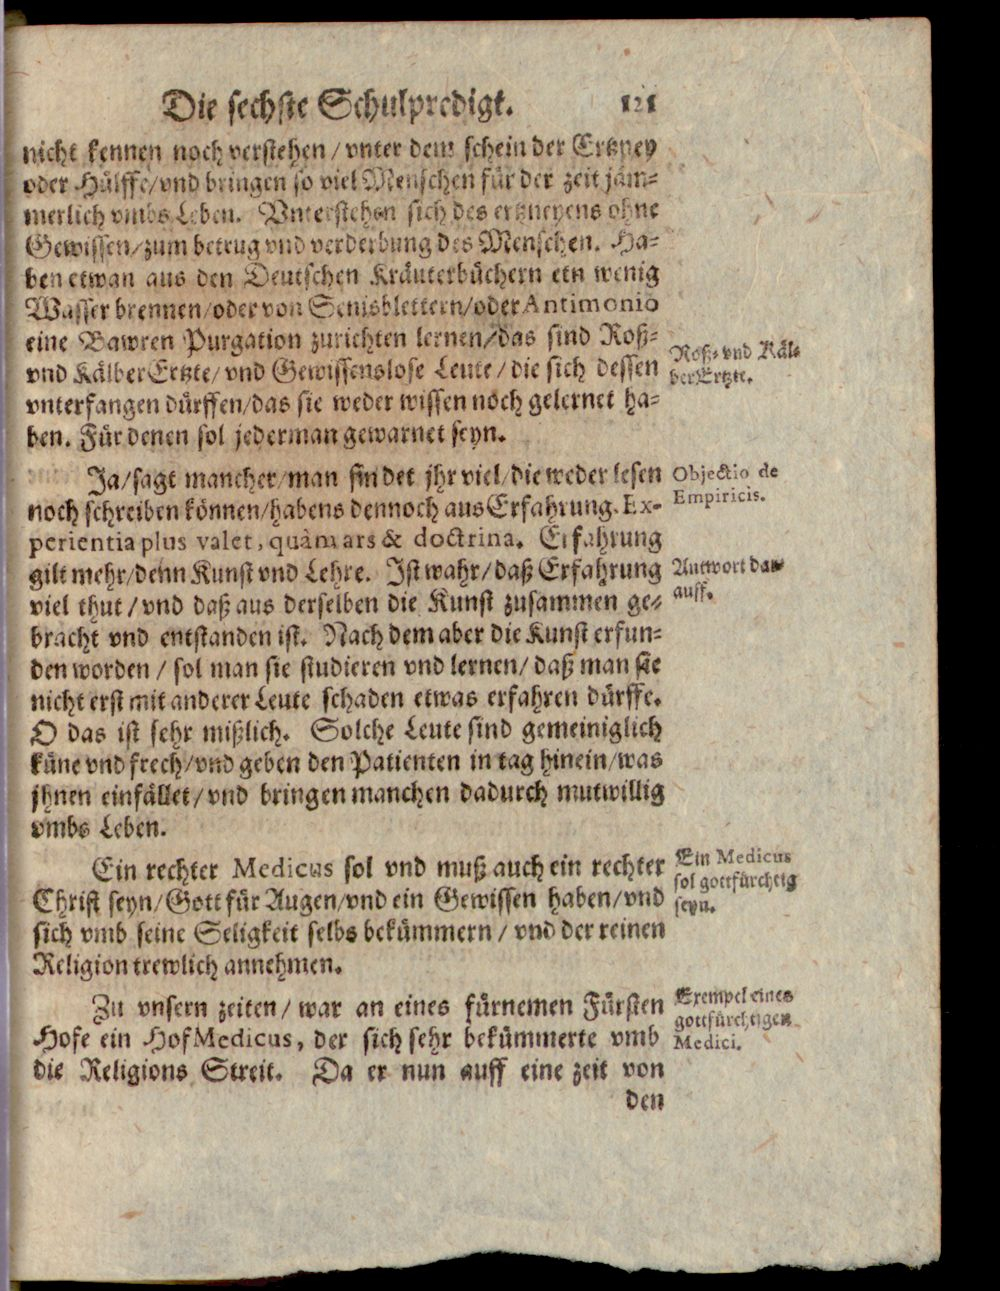 Die sechste Schulpredigt. 121
nicht kennen noch verstehen / vnter dem schein der Ertzney
oder Hülffe/vnd bringen so viel Menschen für der zeit jäm-
merlich vmbs Leben. Vnterstehen sich des ertzneyens ohne
Gewissen/zum betrug vnd verderbung des Menschen. Ha-
ben etwan aus den Deutschen Kräuterbüchern ein wenig
Wasser brennen/oder von Senisblettern/oder Antimonio
eine Bawren Purgation zurichten lernen/das sind Roß-
vnd KälberErtzte/vnd Gewissenslose Leute/die sich dessen
vnterfangen dürffen/das sie weder wissen noch gelernet ha-
ben. Für denen sol jederman gewarnet seyn.
Roß- vnd Käl-
berErtzte.
Ja/sagt mancher/man findet jhr viel/die weder lesen
noch schreiben können/habens dennoch aus Erfahrung. Ex-
perientia plus valet, quàm ars & doctrina. Erfahrung
gilt mehr/denn Kunst vnd Lehre. Ist wahr/daß Erfahrung
viel thut/vnd daß aus derselben die Kunst zusammen ge-
bracht vnd entstanden ist. Nach dem aber die Kunst erfun-
den worden / sol man sie studieren vnd lernen/daß man sie
nicht erst mit anderer Leute schaden etwas erfahren dürffe.
O das ist sehr mißlich. Solche Leute sind gemeiniglich
küne vnd frech/vnd geben den Patienten in tag hinein/was
jhnen einfället/vnd bringen manchen dadurch mutwillig
vmbs Leben.
Objectio de
Empiricis.
Antwort dar-
auff.
Ein rechter Medicus sol vnd muß auch ein rechter
Christ seyn/Gott für Augen/vnd ein Gewissen haben/vnd
sich vmb seine Seligkeit selbs bekümmern / vnd der reinen
Religion trewlich annehmen.
Ein Medicus
sol gottfürchtig
seyn.
Zu vnsern zeiten / war an eines fürnemen Fürsten
Hofe ein HofMedicus, der sich sehr bekümmerte vmb
die Religions Streit. Da er nun auff eine zeit von
den
Exempel eines
gottfürchtigen
Medici.